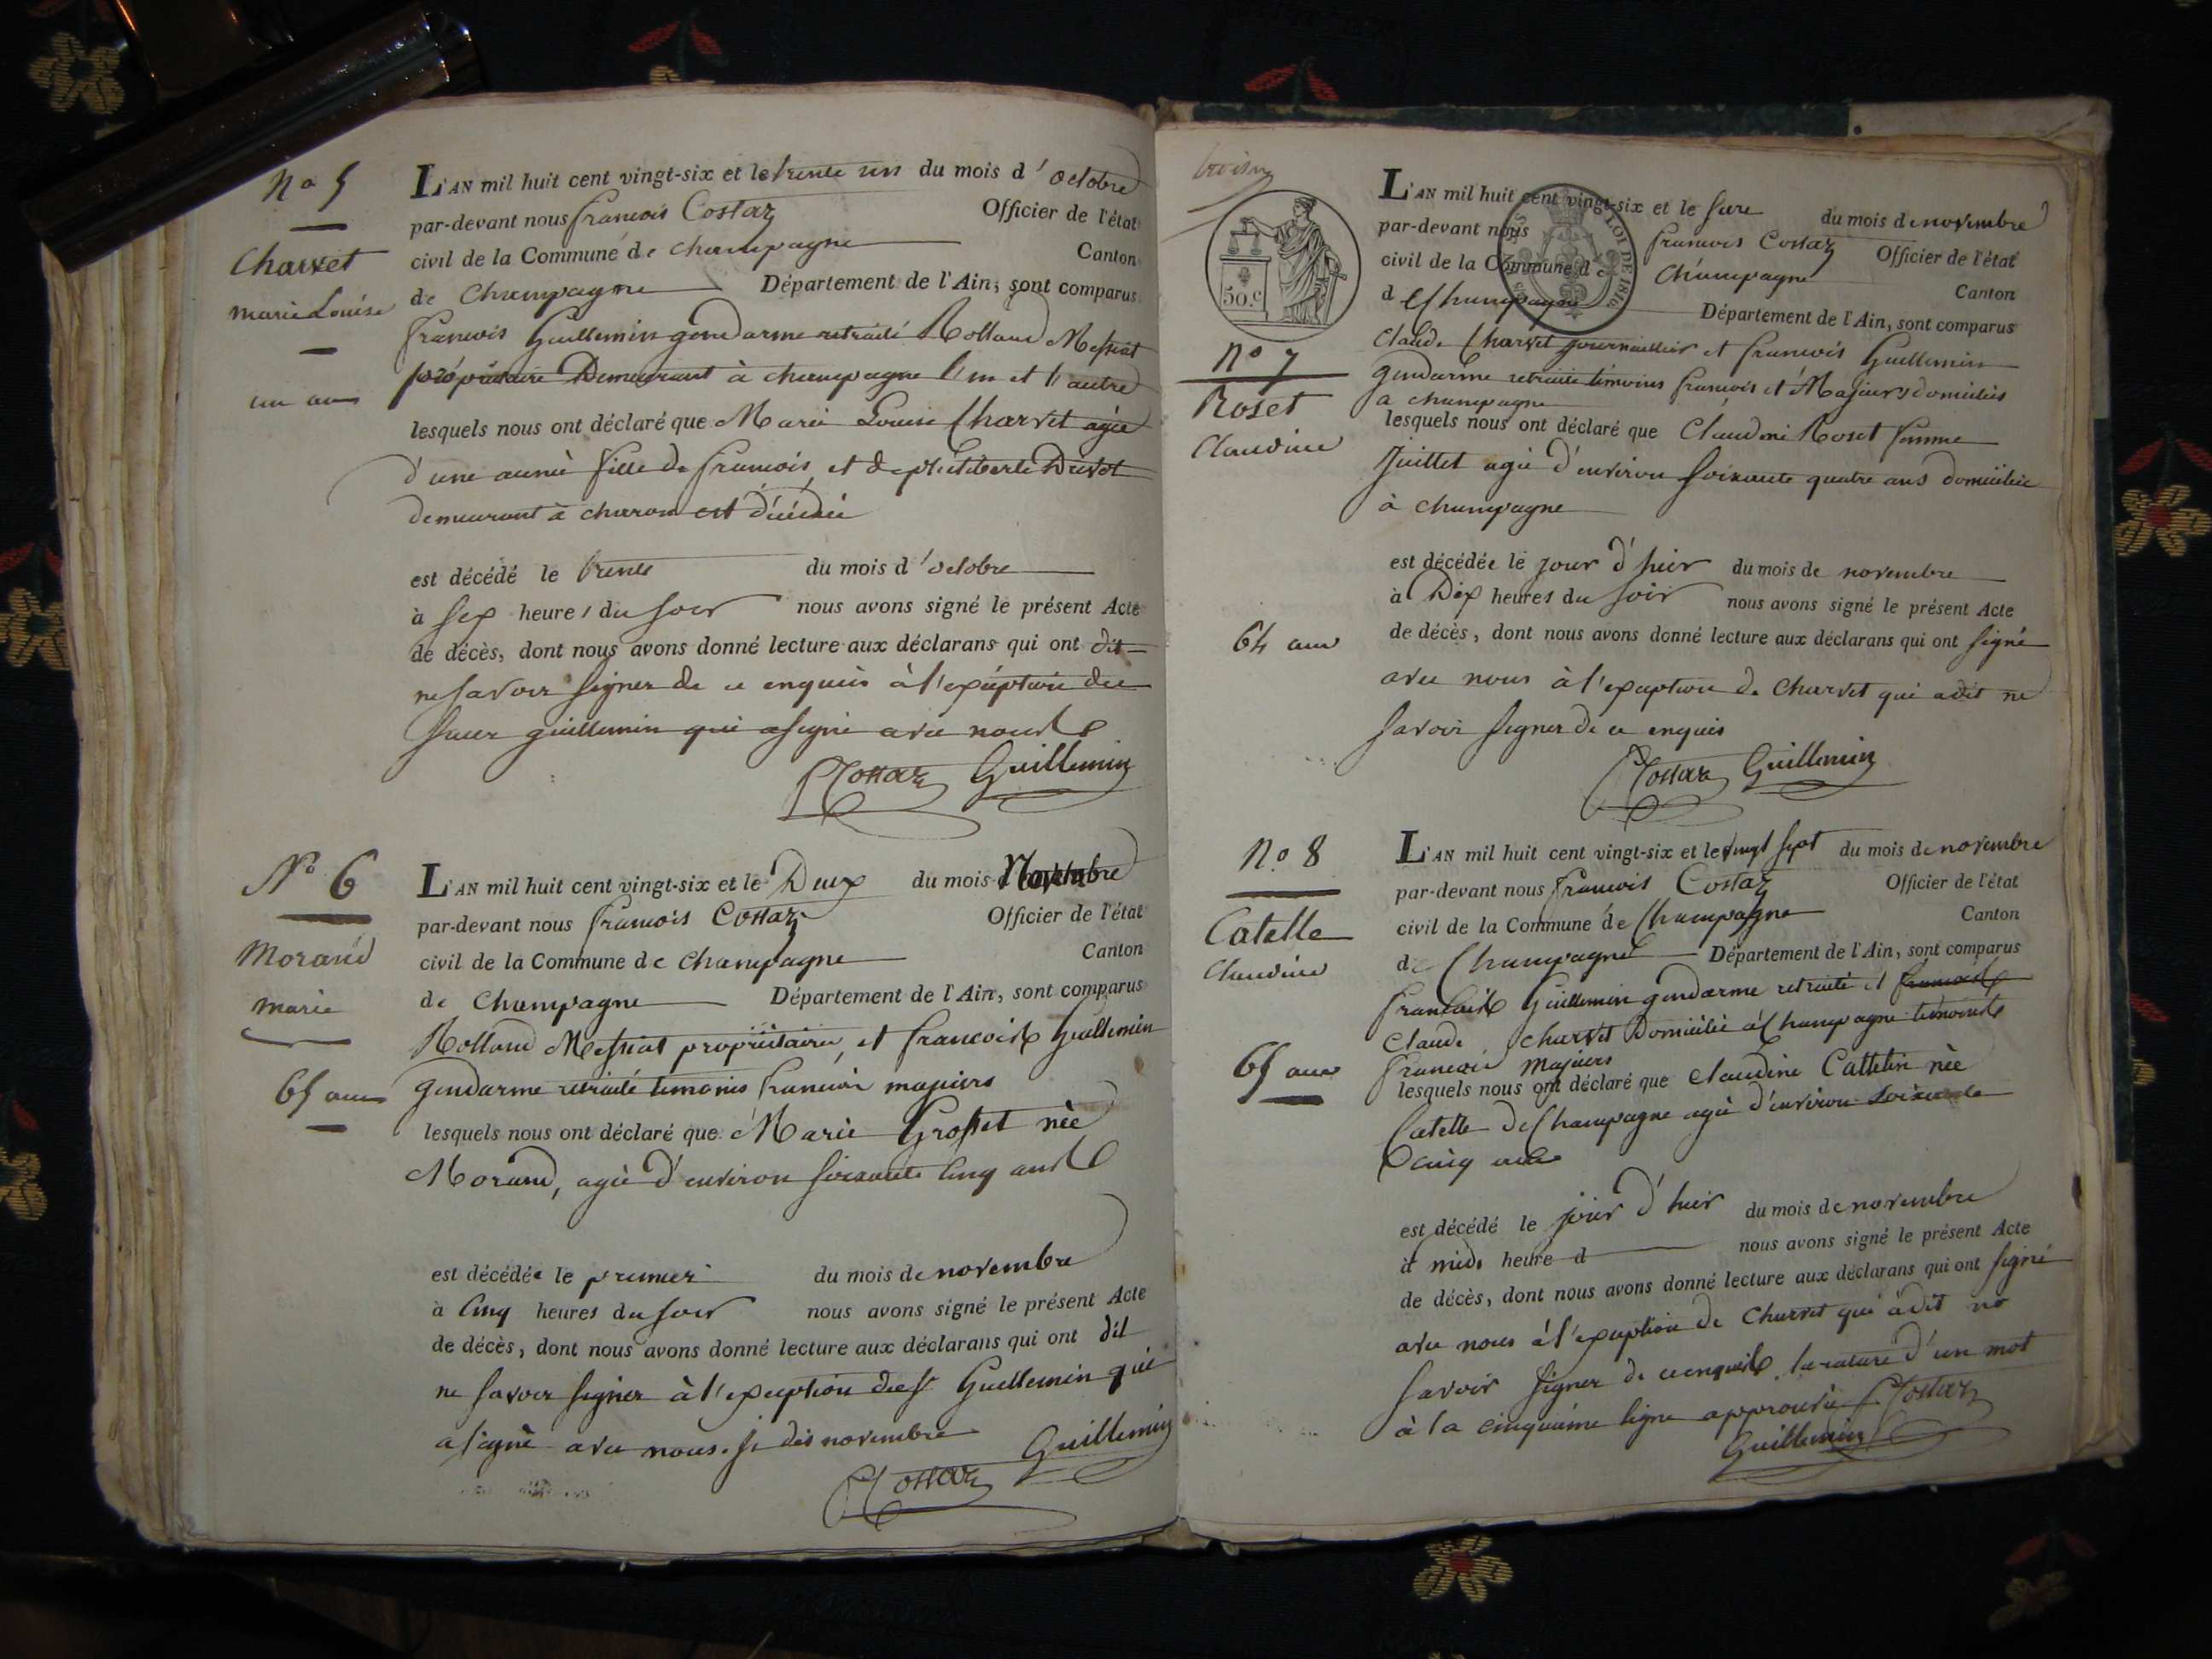 No 5
Charvet
marie Louise
un an
L'AN mil huit cent vingt-six et le trente un du mois d'octobre
par-devant nous francois Costaz Officier de l'état
civil de la Commune de champagne Canton
de Champagne Département de l'Ain, sont comparus
francois Guillemin gendarme retraité Rolland Messiat
propriétaire Demeurant à champagne l'un et l'autre
lesquels nous ont déclaré que Marie Louise Charvet agée
d'une année fille de francois et de
demeurant à charon est décédée
est décédé le trente du mois d'octobre
à sep heures du soir nous avons signé le présent Acte
de décès, dont nous avons donné lecture aux déclarans qui ont dit
ne savoir signer de ce enquis à l'exception du
sieur guillemin qui a signé avec nous
Costaz Guillemin
No 6
Morand
marie
65 ans
L'AN mil huit cent vingt-six et le Deux du mois Novembre
par-devant nous francois Costaz Officier de l'état
civil de la Commune de champagne Canton
de Champagne Département de l'Ain, sont comparus
Rolland Messiat propriétaire, et francois Guillemin
gendarme retraité temoins francois majeurs
lesquels nous ont déclaré que Marie Grosset née
Morand, agée d'environ soixante cinq ans
est décédée le premier du mois de novembre
à cinq heures du soir nous avons signé le présent Acte
de décès, dont nous avons donné lecture aux déclarans qui ont dit
ne savoir signer à l'exception du sr Guillemin qui
a signé avec nous. novembre
Costaz Guillemin
50.c
LOI DE 1816
No 7
Roset
Claudine
64 ans
L'AN mil huit cent vingt-six et le du mois de novembre
par-devant nous francois Costaz Officier de l'état
civil de la Commune de Champagne Canton
d Champagne Département de l'Ain, sont comparus
Claude Charvet journaillier et francois Guillemin
gendarme retraité témoins francois et Majeurs domiciliés
a champagne
lesquels nous ont déclaré que Claudine Roset femme
Juillet agée d'environ soixante quatre ans domiciliée
à champagne
est décédée le jour d'hier du mois de novembre
à Dix heures du soir nous avons signé le présent Acte
de décès, dont nous avons donné lecture aux déclarans qui ont signé
avec nous à l'exception de Charvet qui a dit ne
savoir signer de ce enquis
Costaz Guillemin
No 8
Catelle
Claudine
65 ans
L'AN mil huit cent vingt-six et le vingt sept du mois de novembre
par-devant nous francois Costaz Officier de l'état
civil de la Commune de Champagne Canton
de Champagne Département de l'Ain, sont comparus
francois Guillemin gendarme retraité et francois
Claude Charvet Domicilié à Champagne témoins
francois majeurs
lesquels nous ont déclaré que claudine Cattelin née
Catelle de Champagne agée d'environ soixante
cinq ans
est décédé le jour d'hier du mois de novembre
à midi heure d nous avons signé le présent Acte
de décès, dont nous avons donné lecture aux déclarans qui ont signé
avec nous à l'exception de Charvet qui à dit ne
savoir signer de ce enquis la rature d'un mot
à la cinquième ligne approuvée Costaz
Guillemin